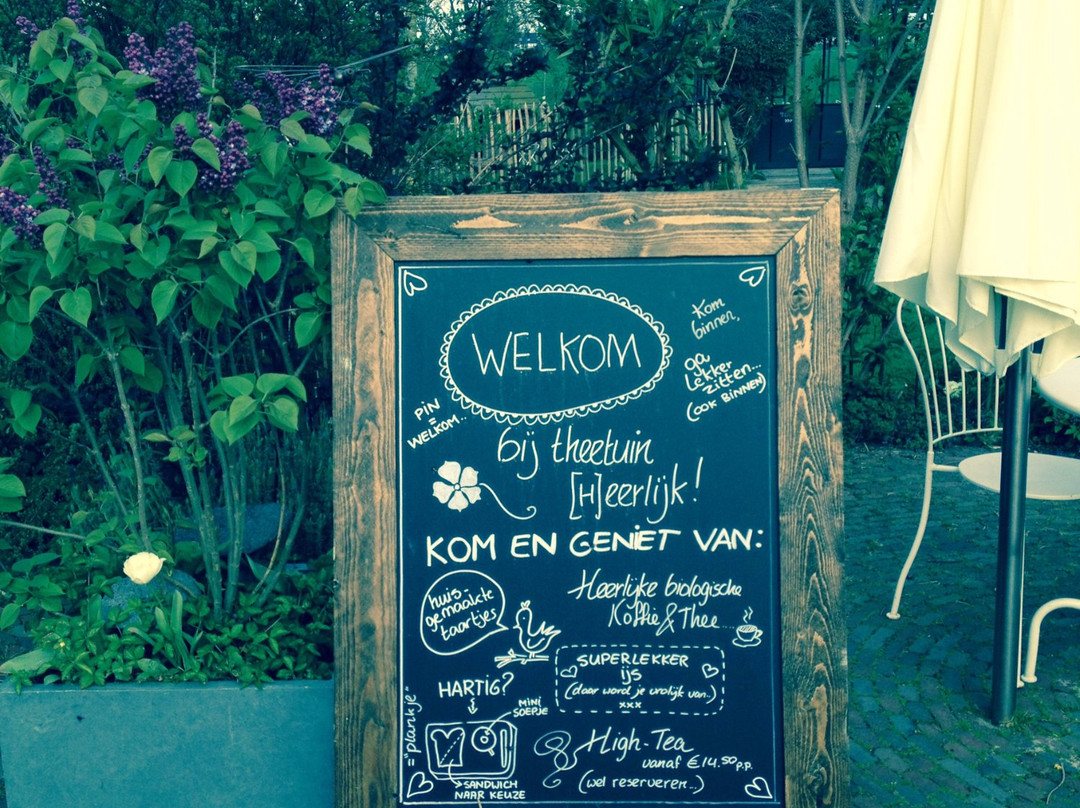 WELKOM
Kom
binnen,
ga
Lekker
zitten...
(OOK BINNEN)
PIN
=
WELKOM..
bij theetuin
[H]eerlijk!
KOM EN GENIET VAN:
huis
gemaakte
taartjes
Heerlijke biologische
Koffie & Thee....
SUPERLEKKER
ijs
(daar word je vrolijk van..)
xxx
HARTIG?
MINI
SOEPJE
="plankje"
SANDWICH
NAAR KEUZE
High-Tea
vanaf €14.50 p.p.
(wel reserveren...)